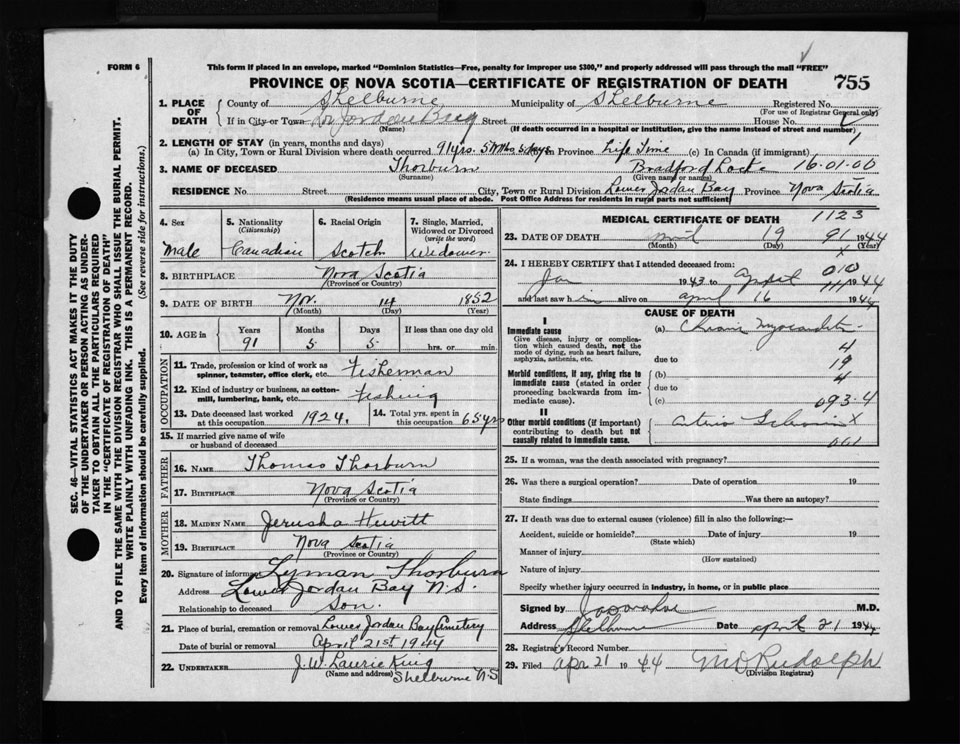 FORM 6
This form if placed in an envelope, marked "Dominion Statistics—Free, penalty for improper use $300," and properly addressed will pass through the mail "FREE"
PROVINCE OF NOVA SCOTIA—CERTIFICATE OF REGISTRATION OF DEATH 755
1. PLACE OF DEATH
County of Shelburne Municipality of Shelburne Registered No.
(For use of Registrar General only)
If in City or Town Lr Jordan Bay Street House No.
(Name) (If death occurred in a hospital or institution, give the name instead of street and number)
2. LENGTH OF STAY (in years, months and days)
(a) In City, Town or Rural Division where death occurred 91 yrs. 5 Mths. 5 days In Province Life Time (c) In Canada (if immigrant)
3. NAME OF DECEASED Thorburn Bradford Locke 16-01-00
(Surname) (Given name or names)
RESIDENCE No. Street City, Town or Rural Division Lower Jordan Bay Province Nova Scotia
(Residence means usual place of abode. Post Office Address for residents in rural parts not sufficient)
4. Sex
Male
5. Nationality
(Citizenship)
Canadian
6. Racial Origin
Scotch
7. Single, Married, Widowed or Divorced
(write the word)
widower
8. BIRTHPLACE Nova Scotia
(Province or Country)
9. DATE OF BIRTH Nov. 14 1852
(Month) (Day) (Year)
10. AGE in Years Months Days If less than one day old
91 5 5 hrs. or min.
OCCUPATION
11. Trade, profession or kind of work as
spinner, teamster, office clerk, etc. Fisherman
12. Kind of industry or business, as cotton-
mill, lumbering, bank, etc. Fishing
13. Date deceased last worked
at this occupation 1924.
14. Total yrs. spent in
this occupation 65 yrs
15. If married give name of wife
or husband of deceased
FATHER
16. NAME Thomas Thorburn
17. BIRTHPLACE Nova Scotia
(Province or Country)
MOTHER
18. MAIDEN NAME Jerusha Hewitt
19. BIRTHPLACE Nova Scotia
(Province or Country)
20. Signature of informant Lyman Thorburn
Address Lower Jordan Bay N.S.
Relationship to deceased Son.
21. Place of burial, cremation or removal Lower Jordan Bay Cemetery
Date of burial or removal April 21st 1944
22. UNDERTAKER J. W. Laurie King
(Name and address) Shelburne N.S
MEDICAL CERTIFICATE OF DEATH
1123
23. DATE OF DEATH April 19 91 1944
(Month) (Day) x (Year)
24. I HEREBY CERTIFY that I attended deceased from: 010
Jan 1943 to April 111 1944
and last saw him alive on April 16 1944
CAUSE OF DEATH
I
Immediate cause
Give disease, injury or complica-
tion which caused death, not the
mode of dying, such as heart failure,
asphyxia, asthenia, etc.
(a) Chronic Myocarditis
4
due to 19
Morbid conditions, if any, giving rise to
immediate cause (stated in order
proceeding backwards from im-
mediate cause).
(b) 4
due to
(c) 093-4
II
Other morbid conditions (if important)
contributing to death but not
causally related to immediate cause. x
25. If a woman, was the death associated with pregnancy?
26. Was there a surgical operation? Date of operation 19
State findings Was there an autopsy?
27. If death was due to external causes (violence) fill in also the following:—
Accident, suicide or homicide? Date of injury 19
(State which)
Manner of injury
(How sustained)
Nature of injury
Specify whether injury occurred in industry, in home, or in public place
Signed by M.D.
Address Shelburne Date April 21 1944
28. Registrar's Record Number
29. Filed Apr 21 1944 M D Rudolph
(Division Registrar)
SEC. 46—VITAL STATISTICS ACT MAKES IT THE DUTY
OF THE UNDERTAKER OR PERSON ACTING AS UNDER-
TAKER TO OBTAIN ALL THE PARTICULARS REQUIRED
IN THE "CERTIFICATE OF REGISTRATION OF DEATH"
AND TO FILE THE SAME WITH THE DIVISION REGISTRAR WHO SHALL ISSUE THE BURIAL PERMIT.
WRITE PLAINLY WITH UNFADING INK. THIS IS A PERMANENT RECORD.
Every item of information should be carefully supplied. (See reverse side for instructions.)